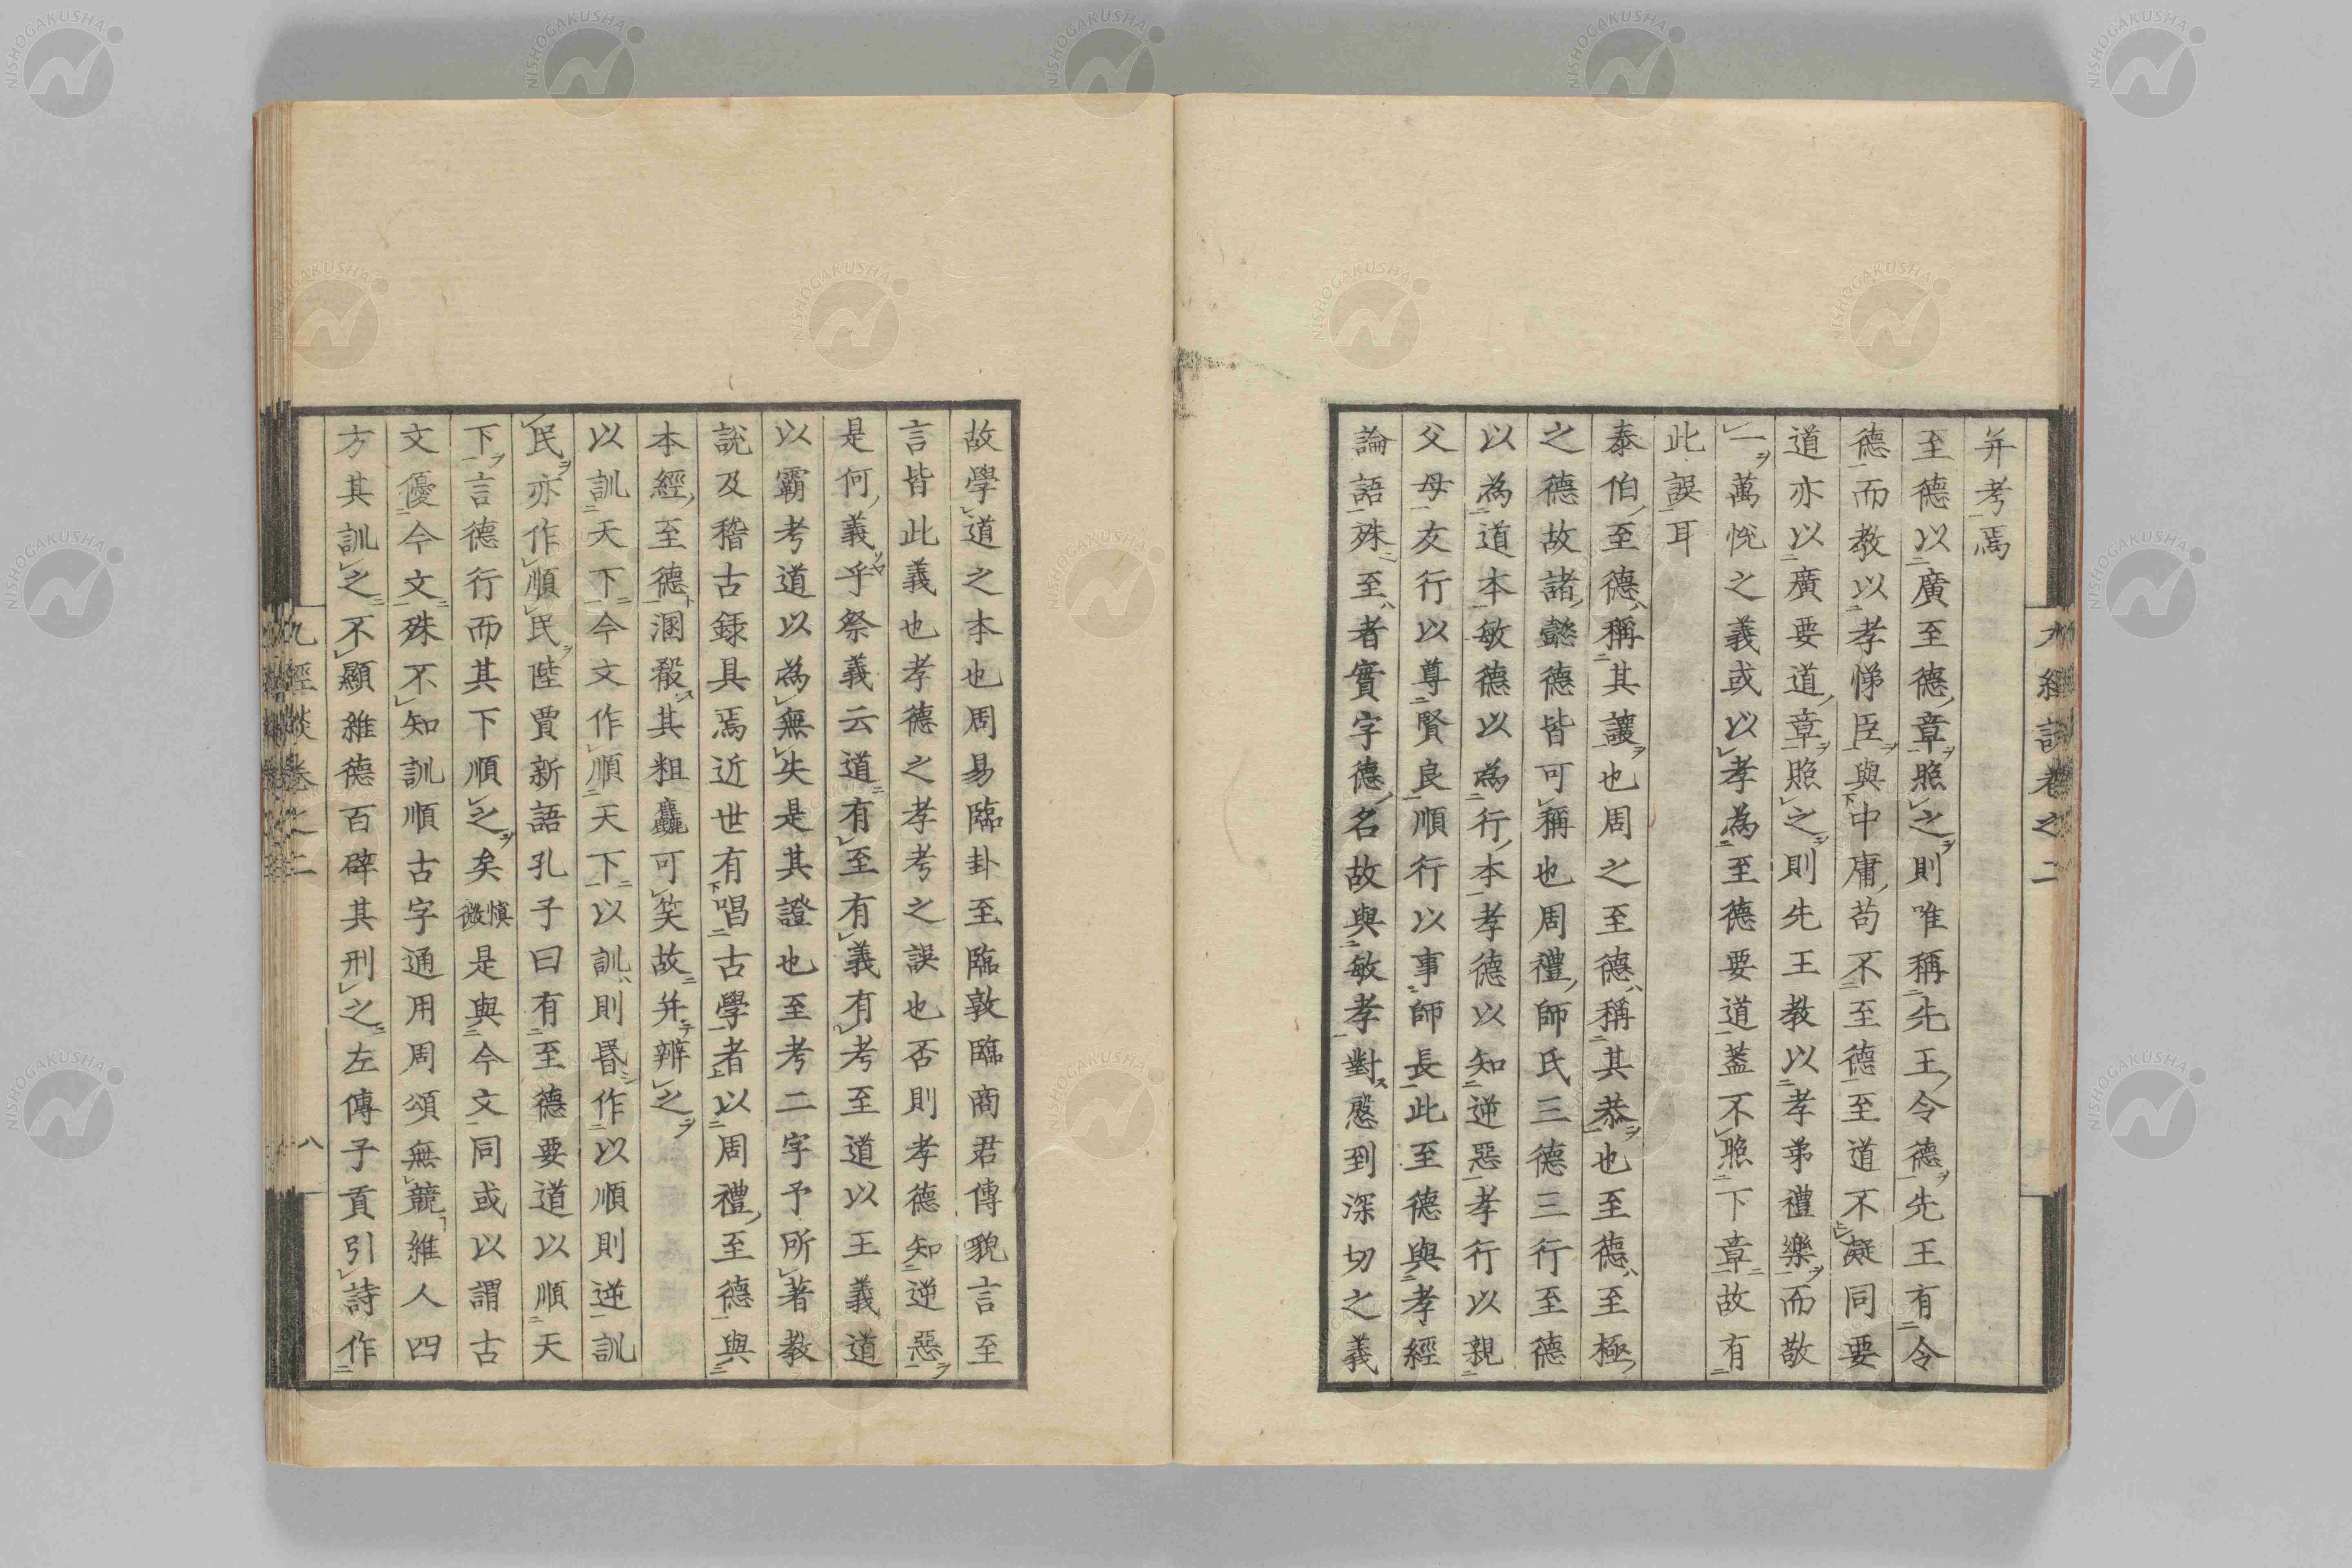 九經談卷之二
并考焉
至德以廣至德章照之則唯稱先王令德先王有令
德而教以孝悌臣與中庸苟不至德至道不凝同要
道亦以廣要道章照之則先王教以孝弟禮樂而敬
一萬悅之義或以孝為至德要道蓋不照下章故有
此誤耳
泰伯至德稱其讓也周之至德稱其恭也至德至極
之德故諸懿德皆可稱也周禮師氏三德三行至德
以為道本敏德以為行本孝德以知逆惡孝行以親
父母友行以尊賢良順行以事師長此至德與孝經
論語殊至者實字德名故與敏孝對慇到深切之義
故學道之本也周易臨卦至臨敦臨商君傳貌言至
言皆此義也孝德之孝考之誤也否則孝德知逆惡
是何義乎祭義云道有至有義有考至道以王義道
以霸考道以為無失是其證也至考二字予所著教
說及稽古錄具焉近世有唱古學者以周禮至德與
本經至德溷殽其粗麤可笑故并辨之
以訓天下今文作順天下以訓則昬作以順則逆訓
民亦作順民陸賈新語孔子曰有至德要道以順天
下言德行而其下順之矣慎微是與今文同或以謂古
文優今文殊不知訓順古字通用周頌無競維人四
方其訓之不顯維德百辟其刑之左傳子貢引詩作
九經談卷之二
八